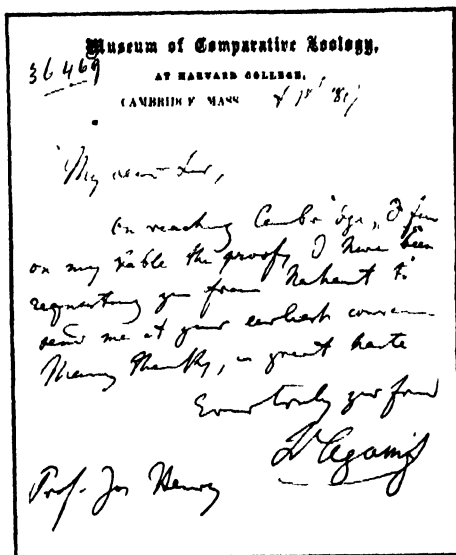 Museum of Comparative Zoology,
36469
AT HARVARD COLLEGE,
CAMBRIDGE MASS
My dear Sir,
On reaching Cambridge, I find
on my table the proofs, I have been
requesting you from Nahant to
send me at your earliest
Many thanks, in great haste
Ever truly your friend
L Agassiz
Prof. Jos Henry